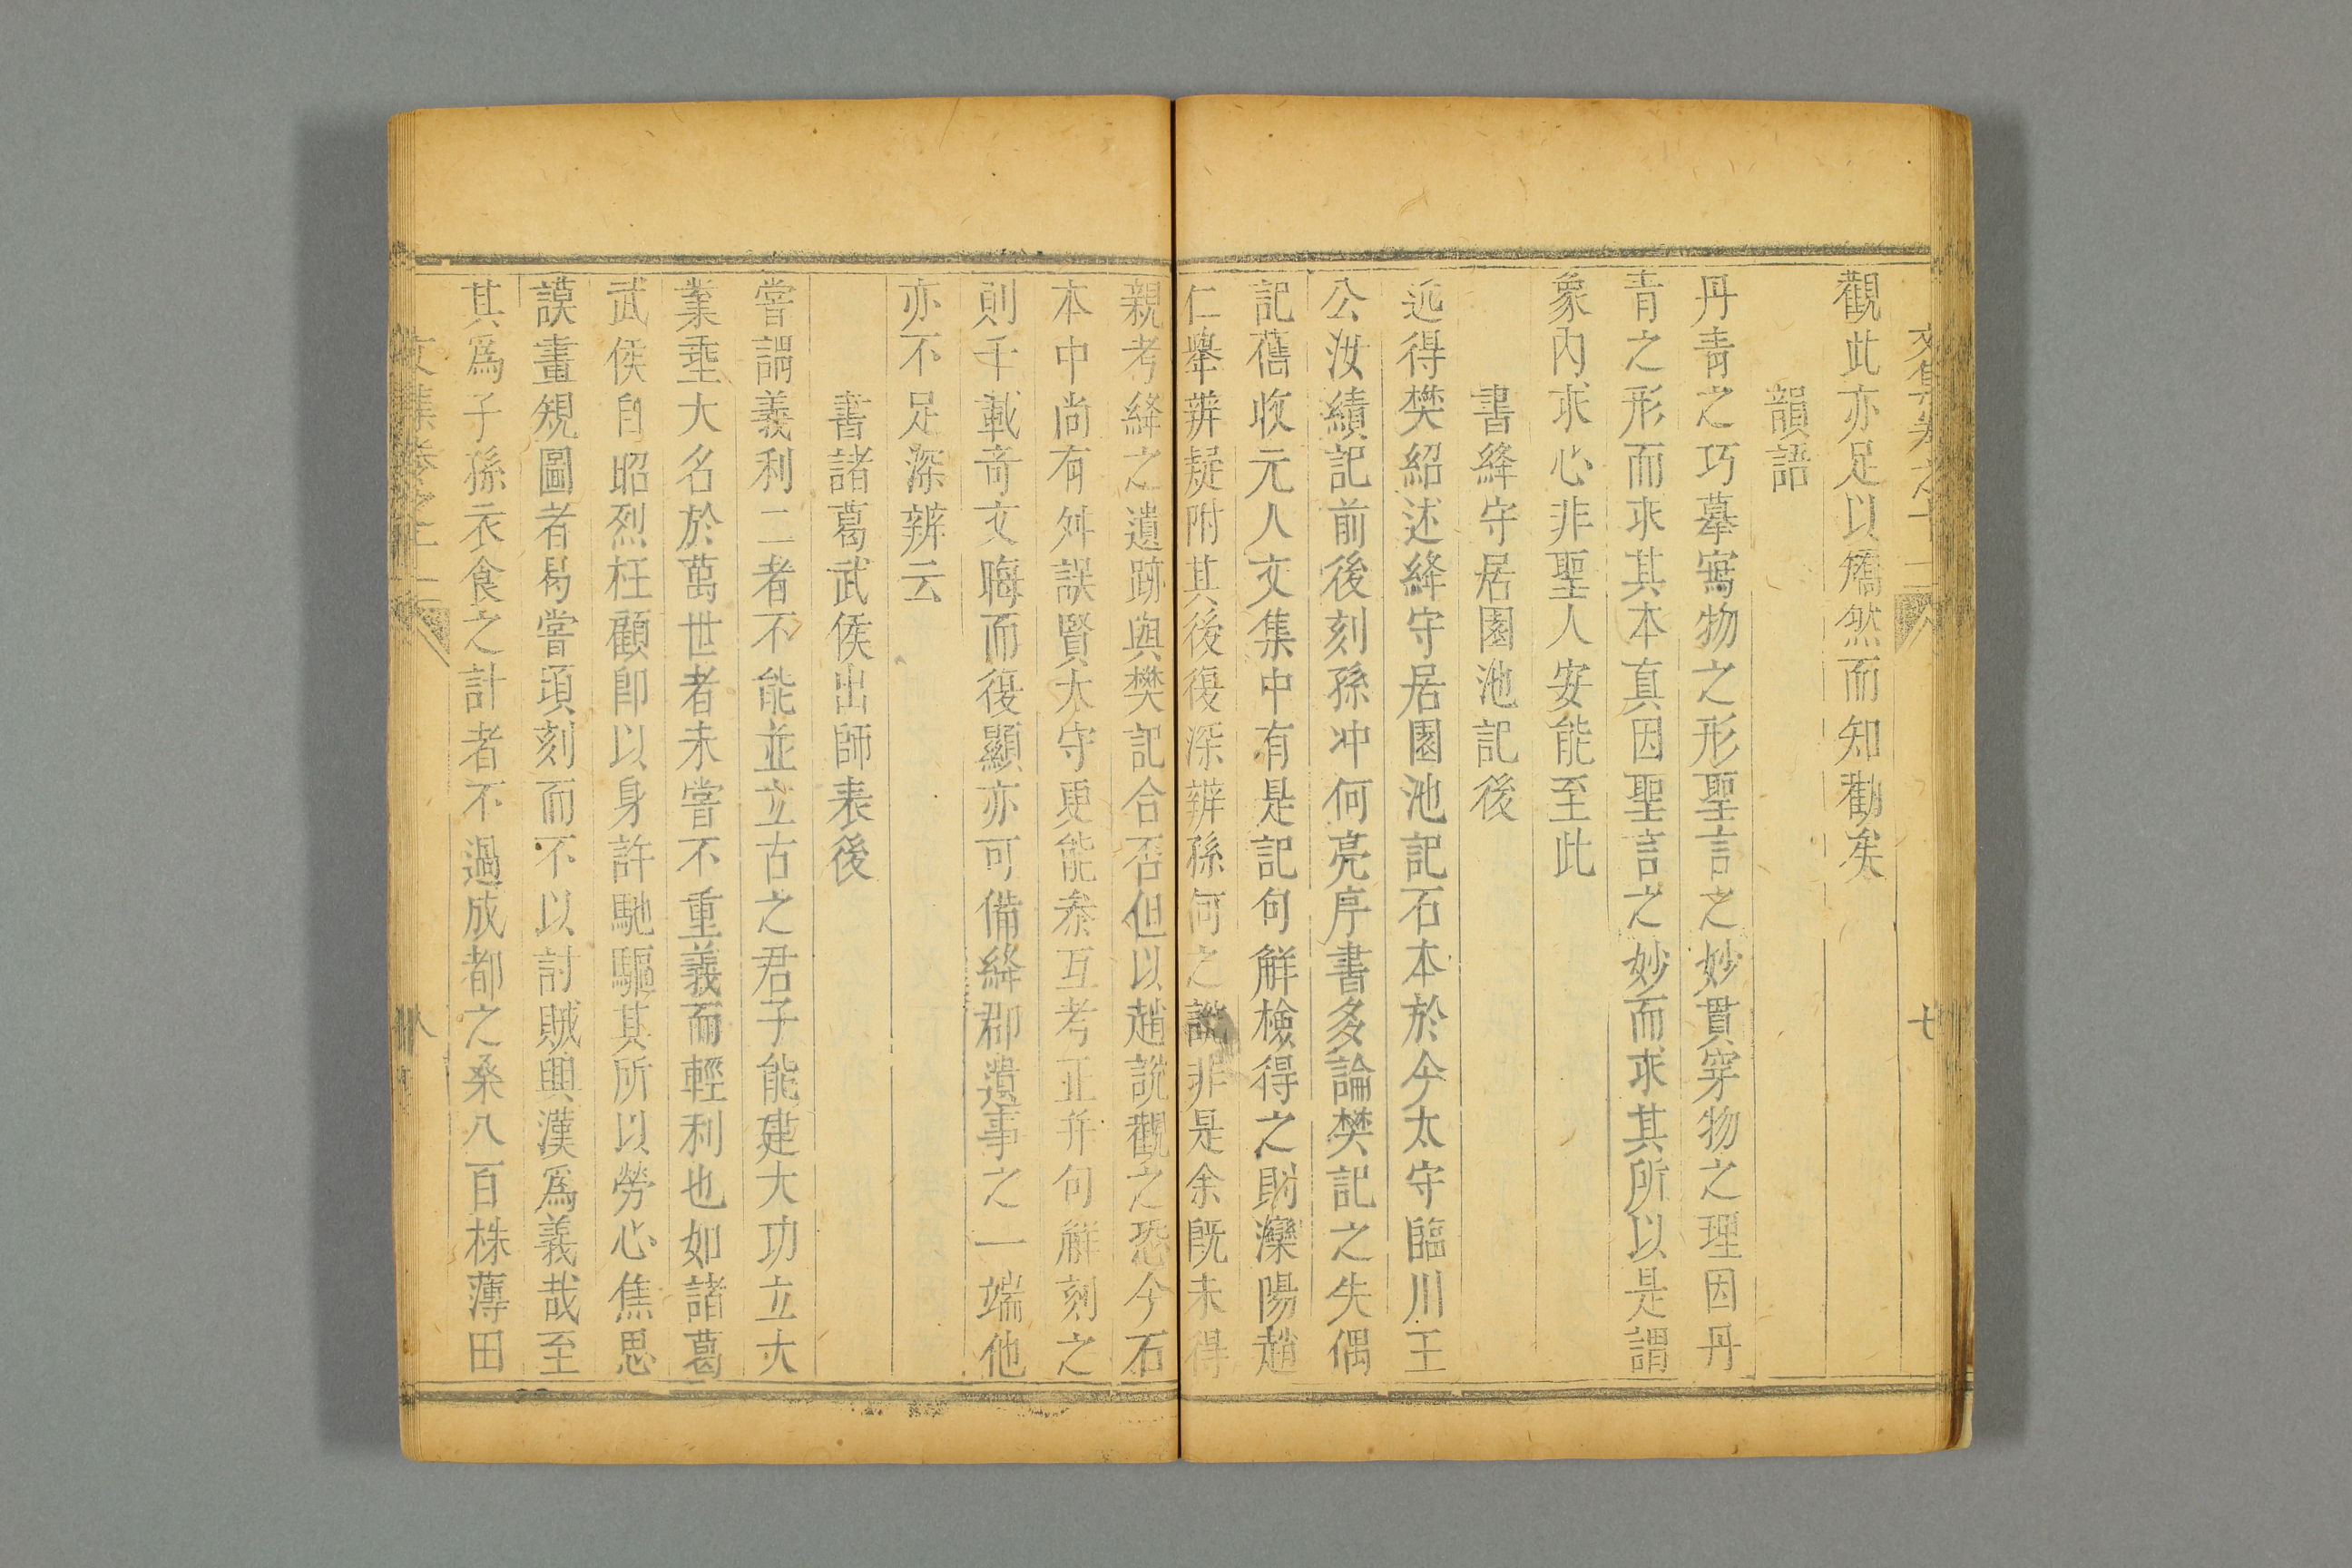 觀此亦足以矯然而知勸矣
韻語
丹青之巧摹寫物之形聖言之妙貫穿物之理因丹
青之形而求其本真因聖言之妙而求其所以是謂
象內求心非聖人安能至此
書絳守居園池記後
近得樊紹述絳守居園池記石本於今太守臨川王
公汝績記前後刻孫冲何亮序書多論樊記之失偶
記舊收元人文集中有是記句解檢得之則灤陽趙
仁舉辨疑附其後復深辨孫何之說非是余既未得
親考絳之遺跡與樊記合否但以趙說觀之恐今石
本中尚有舛誤賢太守更能叅互考正并句解刻之
則千載奇文晦而復顯亦可備絳郡遺事之一端他
亦不足深辨云
書諸葛武侯出師表後
嘗謂義利二者不能並立古之君子能建大功立大
業垂大名於萬世者未嘗不重義而輕利也如諸葛
武侯自昭烈枉顧即以身許馳驅其所以勞心焦思
謨畫規圖者曷嘗頃刻而不以討賊興漢爲義哉至
其爲子孫衣食之計者不過成都之桑八百株薄田
文集卷之十一
八